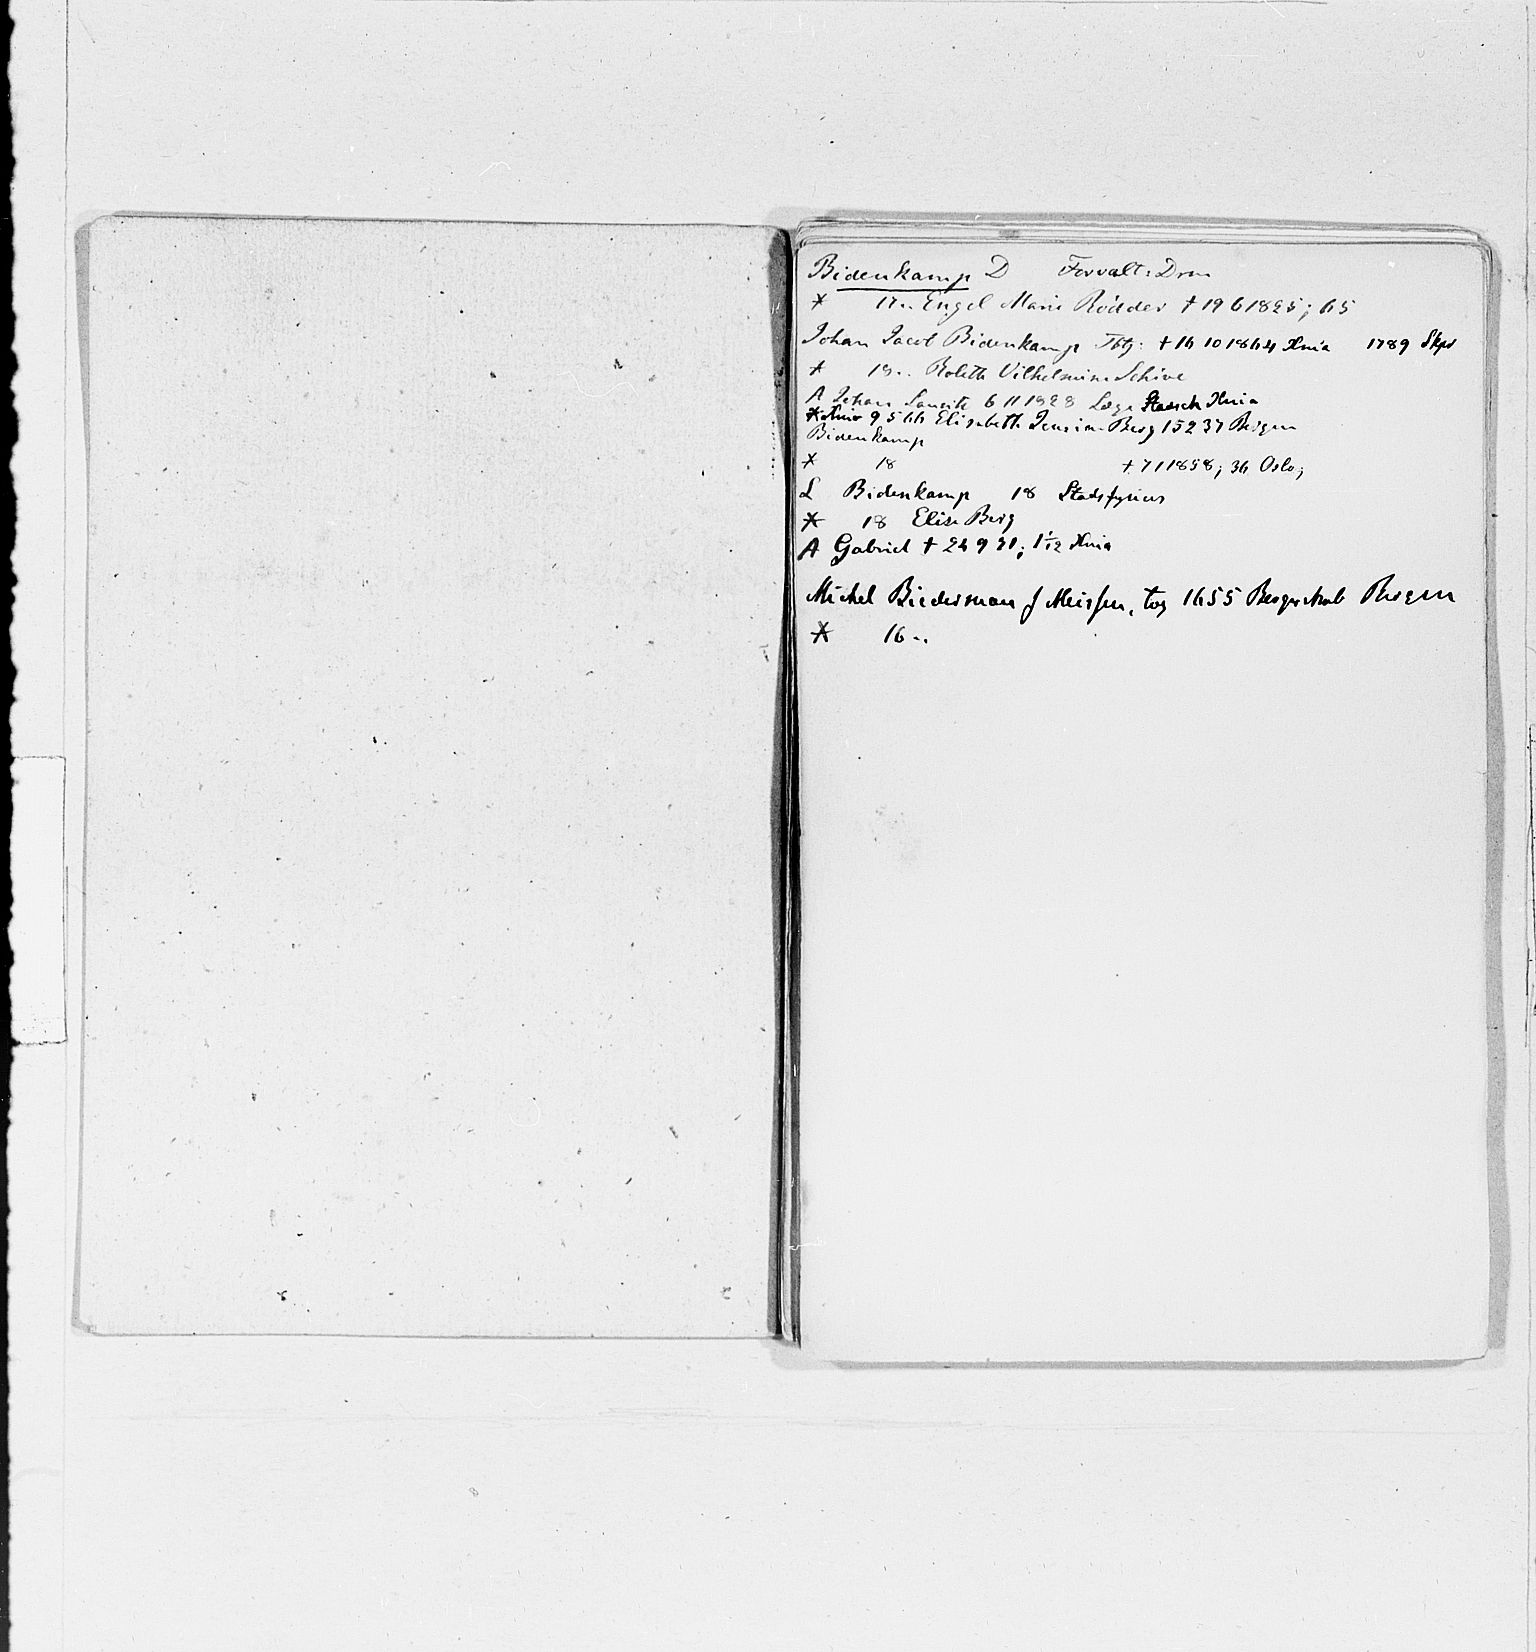 Bidenkamp D Forvalt: Drm
* 17.. Engel Marie Rödder † 19 6 1825; 65
Johan Jacob Bidenkamp Tbtj: † 16 10 1864 Xnia 1789 Skps
* 18.. Bolette Vilhelmine Schive
A Johan Lauritz 6 11 1828 Læge Xnia
* Xnia 9 5 66 Elisabeth Jensine Berg 15 2 37 Bergen
Bidenkamp
* 18 † 7 1 1858; 36 Oslo;
L Bidenkamp 18 Stadsfysicus
* 18 Elise Berg
A Gabriel † 24 9 71; 1 1/12 Xnia
Michel Biederman f Meissen, tog 1655 Borgerskab Bergen
* 16..